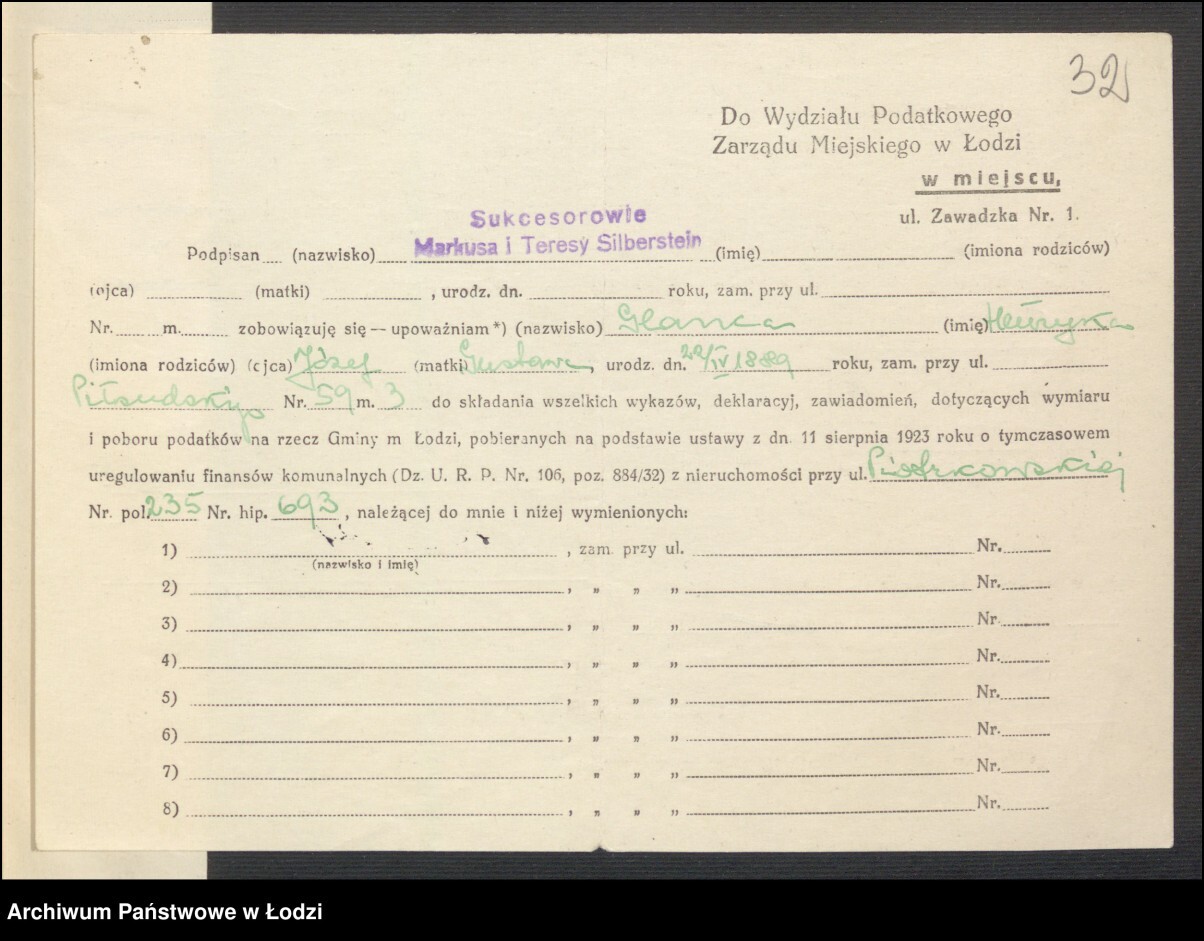 32
Do Wydziału Podatkowego
Zarządu Miejskiego w Łodzi
w miejscu,
ul. Zawadzka Nr. 1.
Sukcesorowie
Markusa i Teresy Silberstein
Podpisan (nazwisko) (imię) (imiona rodziców)
(ojca) (matki) , urodz. dn. roku, zam. przy ul.
Nr. m. zobowiązuję się — upoważniam *) (nazwisko) Glanca (imię) Henryka
(imiona rodziców) (ojca) Józef (matki) Gustawa, urodz. dn. 22/IV 1889 roku, zam. przy ul.
Piłsudskiego Nr. 59 m. 3 do składania wszelkich wykazów, deklaracyj, zawiadomień, dotyczących wymiaru
i poboru podatków na rzecz Gminy m Łodzi, pobieranych na podstawie ustawy z dn. 11 sierpnia 1923 roku o tymczasowem
uregulowaniu finansów komunalnych (Dz. U. R. P. Nr. 106, poz. 884/32) z nieruchomości przy ul. Piotrkowskiej
Nr. pol. 235 Nr. hip. 693, należącej do mnie i niżej wymienionych:
1) , zam. przy ul. Nr.
(nazwisko i imię)
2) , „ „ „ Nr.
3) , „ „ „ Nr.
4) , „ „ „ Nr.
5) , „ „ „ Nr.
6) , „ „ „ Nr.
7) , „ „ „ Nr.
8) , „ „ „ Nr.
Archiwum Państwowe w Łodzi